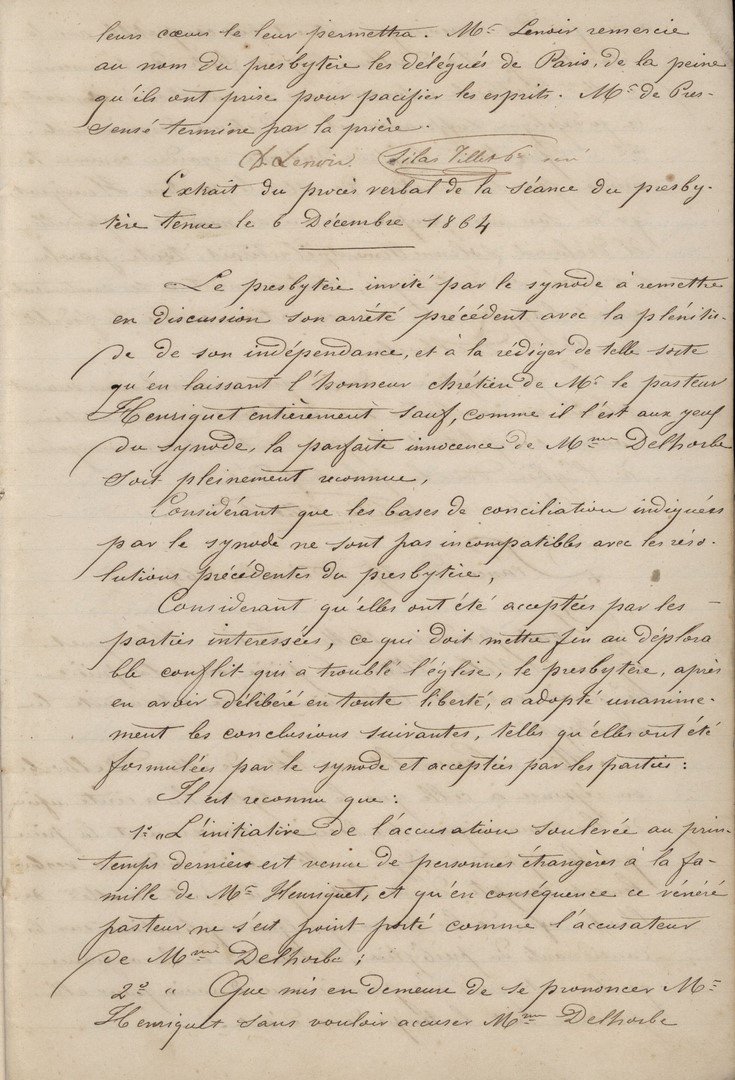 leurs cœurs le leur permettra. Mr Lenoir remercie
au nom du presbytère les délégués de Paris, de la peine
qu'ils ont prise pour pacifier les esprits. Mr de Pres-
sensé termine par la prière.
D. Lenoir. Silas Vilbert
Extrait du procès verbal de la séance du presby-
tère tenue le 6 Décembre 1864
Le presbytère invité par le synode à remettre
en discussion son arrêté précédent avec la plénitu-
de de son indépendance, et à la rédiger de telle sorte
qu'en laissant l'honneur chrétien de Mr le pasteur
Henriquet entièrement sauf, comme il l'est aux yeux
du synode, la parfaite innocence de Mme Delhorbe
soit pleinement reconnue,
Considérant que les bases de conciliation indiquées
par le synode ne sont pas incompatibles avec les réso-
lutions précédentes du presbytère,
Considerant qu'elles ont été acceptées par les
parties interessées, ce qui doit mettre fin au déplora
ble conflit qui a troublé l'église, le presbytère, après
en avoir délibéré en toute liberté, a adopté unanime-
ment les conclusions suivantes, telles qu'elles ont été
formulées par le synode et acceptées par les parties :
Il est reconnu que :
1o „L'initiative de l'accusation soulevée au prin-
temps dernier est venue de personnes étrangères à la fa-
mille de Mr Henriquet, et qu'en conséquence ce vénéré
pasteur ne s'est point porté comme l'accusateur
de Mme Delhorbe ;
2o „ Que mis en demeure de se prononcer Mr
Henriquet sans vouloir accuser Mme Delhorbe